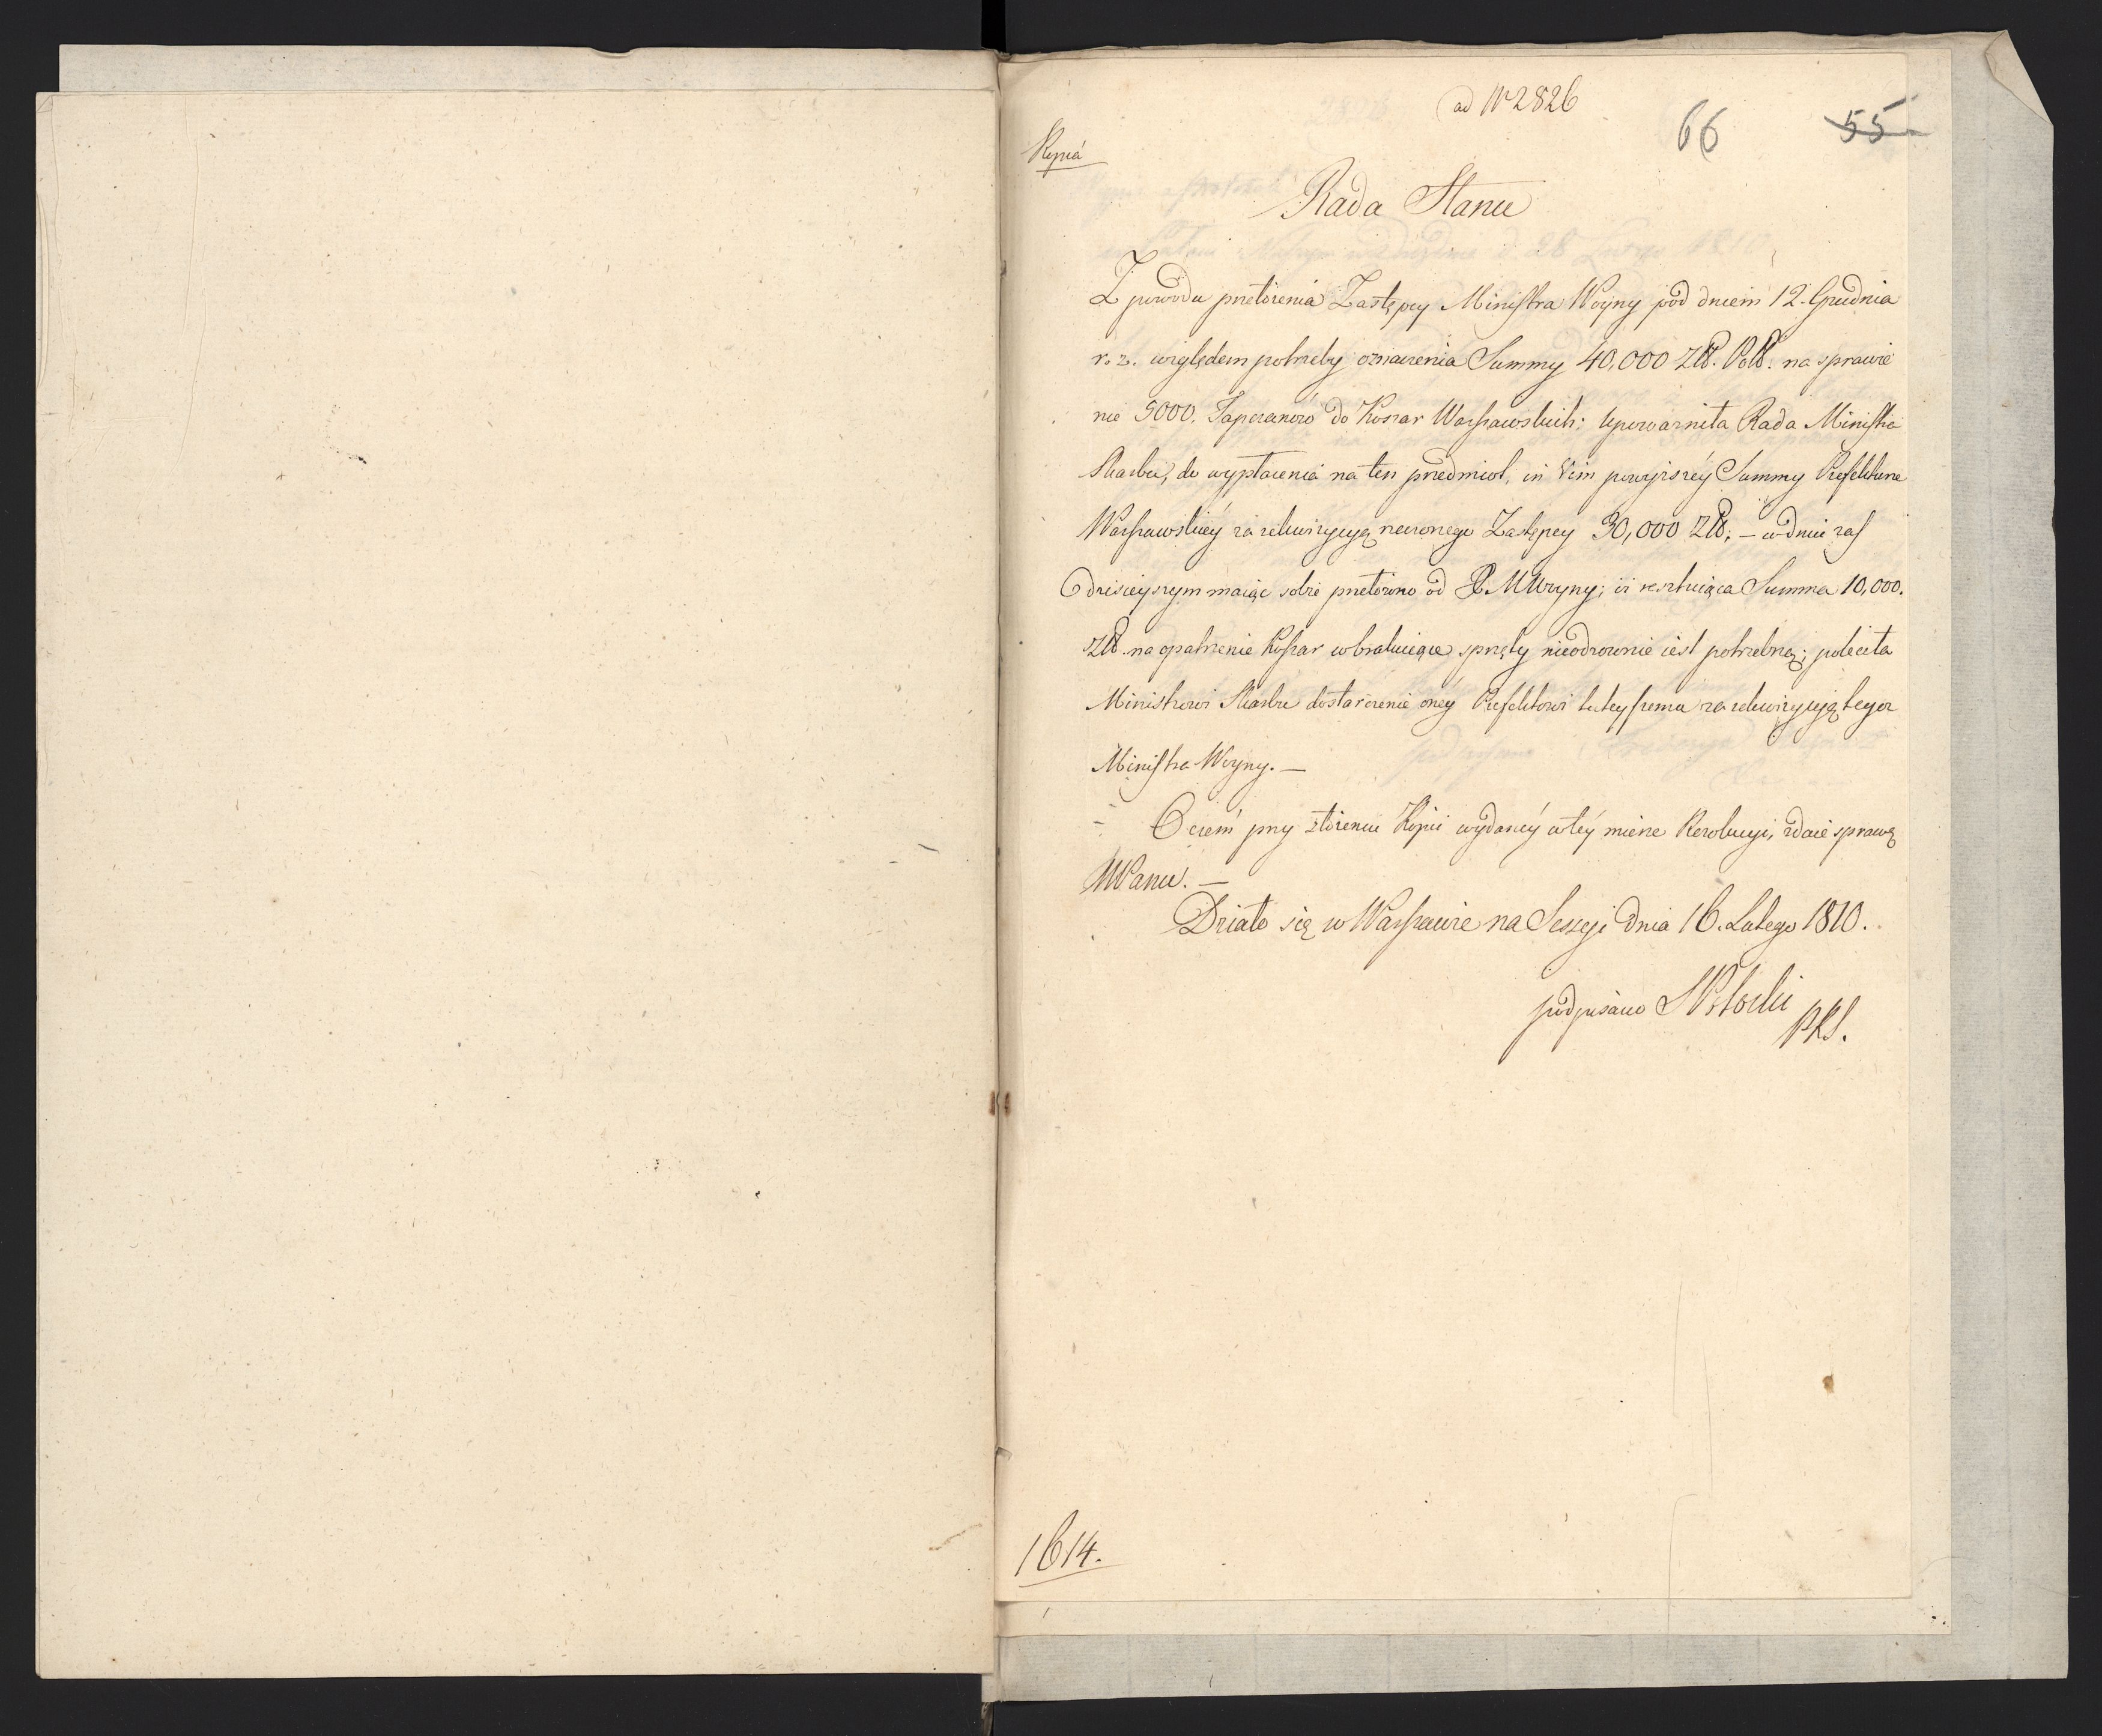 ad Nr 2826
66 55
Kopiá
Rada Stanu
Z powodu przełożenia Zastępcy Ministra Woyny pod dniem 12. Grudnia
r. z. względem potrzeby oznaczenia Summy 40,000 Złł. Poll. na sprawie
nie 5000. Tapczanów do Koszar Warszawskich; upoważniła Rada Ministra
Skarbu, do wypłacenia na ten przedmiot, in Vim powyższéy Summy Prefekturze
Warszawskiéy za rekwizycyą rzeczonego Zastępcy 30,000 Złł; – w dniu zaś
dzisieyszym maiąc sobie przełożono od MWoyny; iż resztuiąca Summa 10,000.
Złł. na opatrzenie Koszar w brakuiące sprzęty nieodzownie iest potrzebną; poleciła
Ministrowi Skarbu dostarczenie onéy Prefektowi tuteyszemu za rekwizycyą tegoż
Ministra Woyny. –
O czém przy złożeniu Kopii wydanéy w téy mierze Rezolucyi, zdaie sprawę
WPanu. –
Działo się w Warszawie na Sessyi dnia 16. Lutego 1810.
podpisano SPotocki
PRS.
1614.